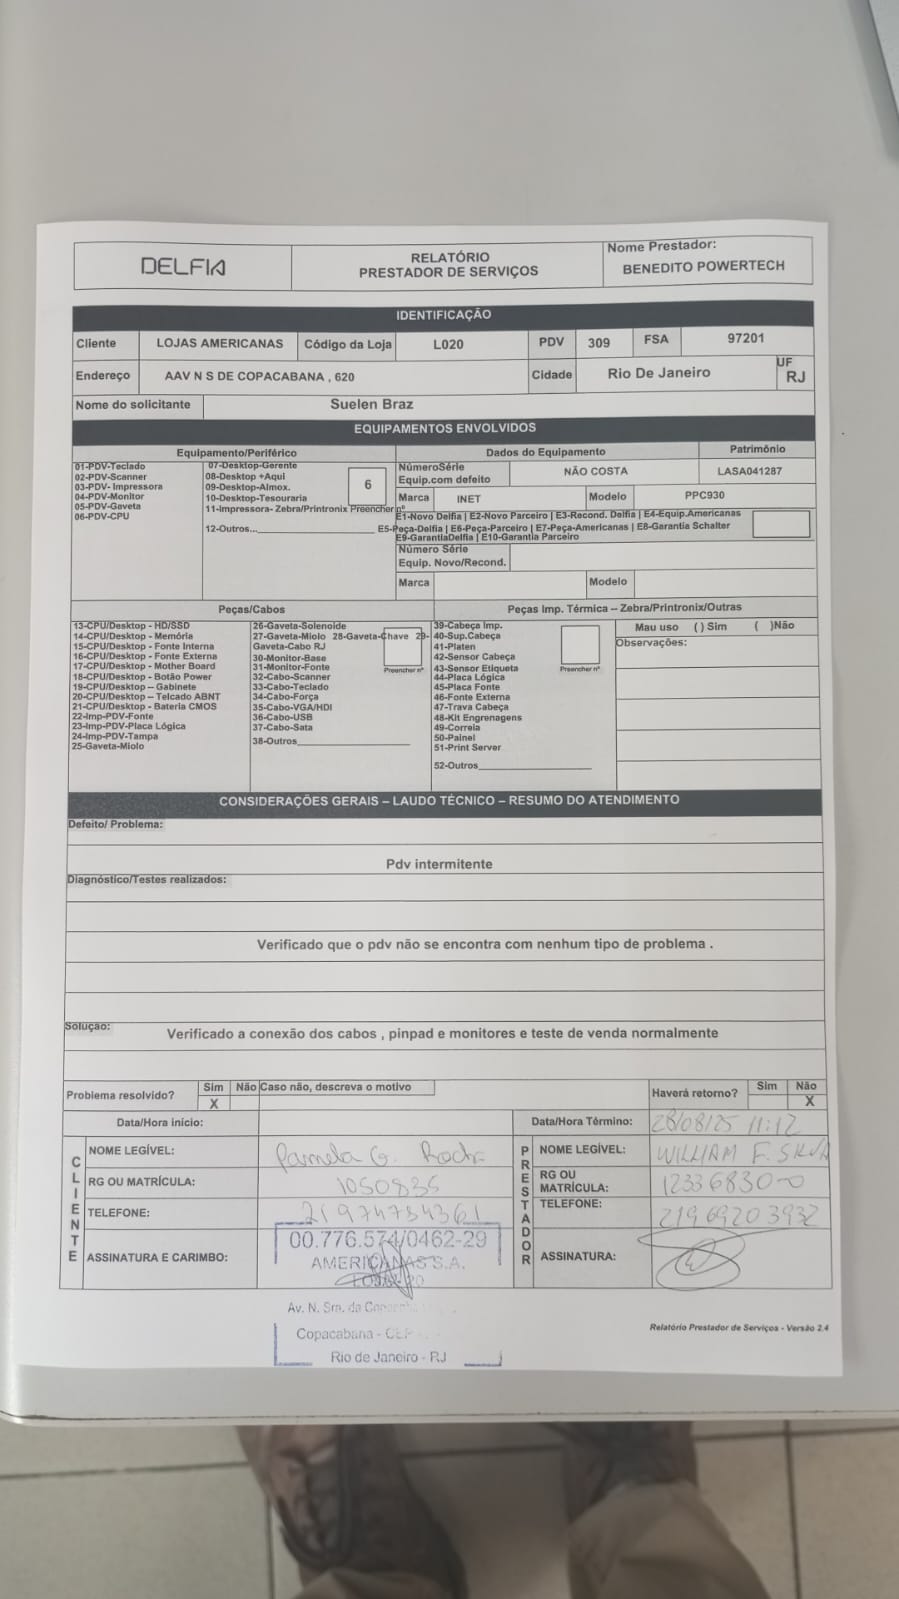 DELFIA
RELATÓRIO
PRESTADOR DE SERVIÇOS
Nome Prestador:
BENEDITO POWERTECH
IDENTIFICAÇÃO
Cliente LOJAS AMERICANAS Código da Loja L020 PDV 309 FSA 97201
Endereço AAV N S DE COPACABANA , 620 Cidade Rio De Janeiro UF RJ
Nome do solicitante Suelen Braz
EQUIPAMENTOS ENVOLVIDOS
Equipamento/Periférico Dados do Equipamento Patrimônio
01-PDV-Teclado
02-PDV-Scanner
03-PDV- Impressora
04-PDV-Monitor
05-PDV-Gaveta
06-PDV-CPU
07-Desktop-Gerente
08-Desktop +Aqui
09-Desktop-Almox.
10-Desktop-Tesouraria
11-Impressora- Zebra/Printronix Preencher nº
12-Outros...
6
NúmeroSérie
Equip.com defeito
NÃO COSTA LASA041287
Marca INET Modelo PPC930
E1-Novo Delfia | E2-Novo Parceiro | E3-Recond. Delfia | E4-Equip.Americanas
E5-Peça-Delfia | E6-Peça-Parceiro | E7-Peça-Americanas | E8-Garantia Schalter
E9-GarantiaDelfia | E10-Garantia Parceiro
Número Série
Equip. Novo/Recond.
Marca Modelo
Peças/Cabos Peças Imp. Térmica – Zebra/Printronix/Outras
13-CPU/Desktop - HD/SSD
14-CPU/Desktop - Memória
15-CPU/Desktop - Fonte Interna
16-CPU/Desktop - Fonte Externa
17-CPU/Desktop - Mother Board
18-CPU/Desktop - Botão Power
19-CPU/Desktop – Gabinete
20-CPU/Desktop – Telcado ABNT
21-CPU/Desktop - Bateria CMOS
22-Imp-PDV-Fonte
23-Imp-PDV-Placa Lógica
24-Imp-PDV-Tampa
25-Gaveta-Miolo
26-Gaveta-Solenoide
27-Gaveta-Miolo 28-Gaveta-Chave 29-
Gaveta-Cabo RJ
30-Monitor-Base
31-Monitor-Fonte
32-Cabo-Scanner
33-Cabo-Teclado
34-Cabo-Força
35-Cabo-VGA/HDI
36-Cabo-USB
37-Cabo-Sata
38-Outros
Preencher nº
39-Cabeça Imp.
40-Sup.Cabeça
41-Platen
42-Sensor Cabeça
43-Sensor Etiqueta
44-Placa Lógica
45-Placa Fonte
46-Fonte Externa
47-Trava Cabeça
48-Kit Engrenagens
49-Correia
50-Painel
51-Print Server
52-Outros
Preencher nº
Mau uso ( ) Sim ( )Não
Observações:
CONSIDERAÇÕES GERAIS – LAUDO TÉCNICO – RESUMO DO ATENDIMENTO
Defeito/ Problema:
Pdv intermitente
Diagnóstico/Testes realizados:
Verificado que o pdv não se encontra com nenhum tipo de problema .
Solução: Verificado a conexão dos cabos , pinpad e monitores e teste de venda normalmente
Problema resolvido? Sim X Não Caso não, descreva o motivo
Haverá retorno? Sim Não X
Data/Hora início: Data/Hora Término: 28/08/25 11:12
CLIENTE
NOME LEGÍVEL: Pamela G. Rocha
RG OU MATRÍCULA: 1050835
TELEFONE: 21974734361
ASSINATURA E CARIMBO:
00.776.574/0462-29
AMERICANAS S.A.
Av. N. Sra. da
Copacabana - CEP
Rio de Janeiro - RJ
PRESTADOR
NOME LEGÍVEL: WILLIAM F. SILVA
RG OU
MATRÍCULA: 123368300
TELEFONE: 21969203932
ASSINATURA:
Relatório Prestador de Serviços - Versão 2.4